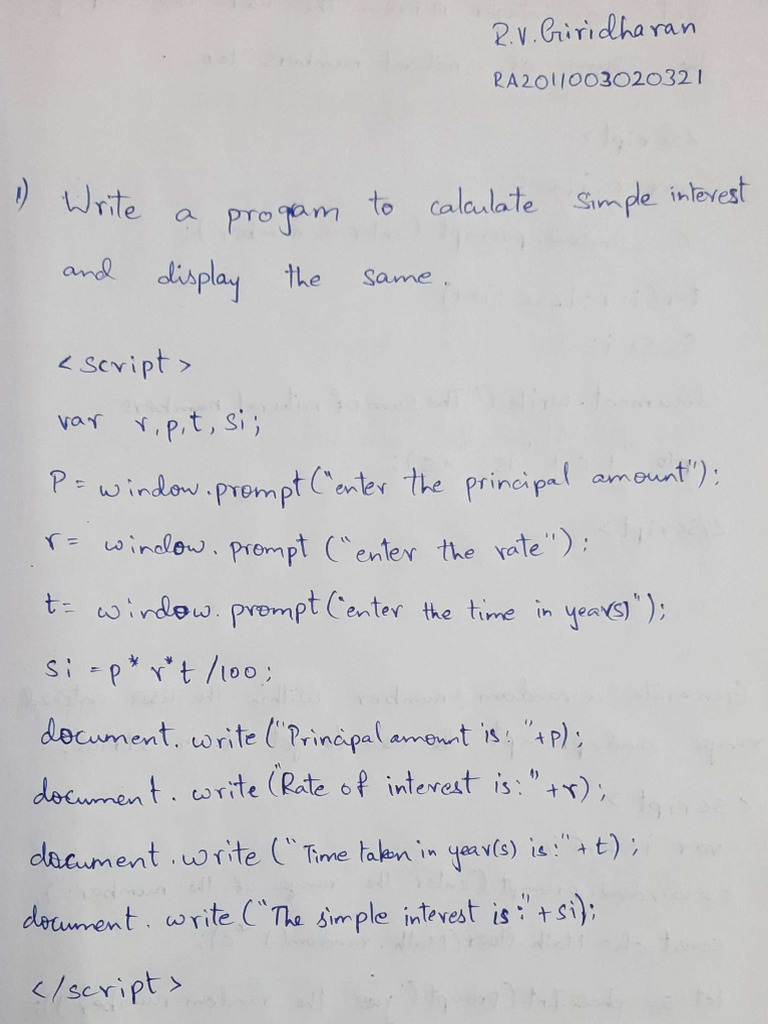 R.V. Giridharan
RA2011003020321
1) Write a progam to calculate simple interest
and display the same.
<script>
var r,p,t, si;
P = window.prompt("enter the principal amount");
r = window. prompt ("enter the rate");
t = window. prompt("enter the time in year(s)");
si = p * r * t /100;
document. write ("Principal amount is: "+p);
document. write ("Rate of interest is:" +r);
document. write ("Time taken in year(s) is:"+t);
document. write ("The simple interest is:"+ si);
</script>